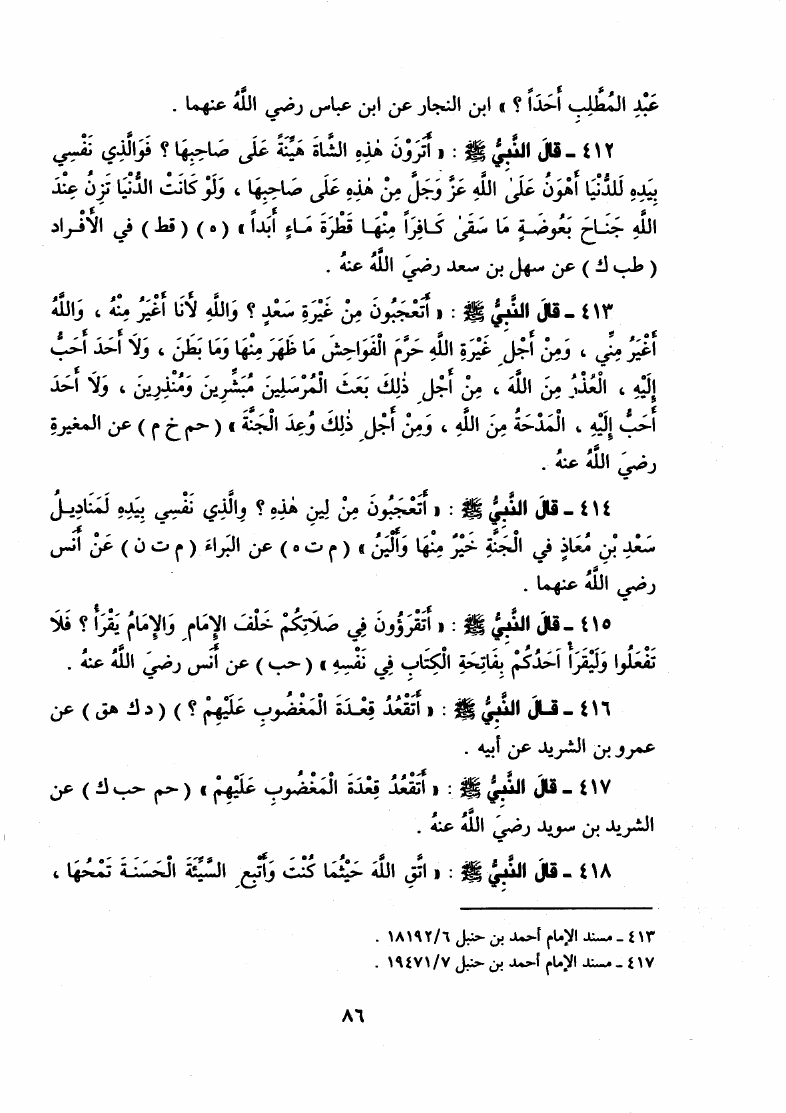 عَبْدِ المُطَّلِبِ أَحَدَاً ؟ » ابن النجار عن ابن عباس رضي اللَّهُ عنهما .
٤١٢ ـ قالَ النَّبِيُّ ﷺ : « أَتَرَوْنَ هٰذِهِ الشَّاةَ هَيِّنَةً عَلَى صَاحِبِهَا ؟ فَوَالَّذِي نَفْسِي
بِيَدِهِ لَلدُّنْيَا أَهْوَنُ عَلَى اللَّهِ عَزَّ وَجَلَّ مِنْ هٰذِهِ عَلَى صَاحِبِهَا ، وَلَوْ كَانَتْ الدُّنْيَا تَزِنُ عِنْدَ
اللَّهِ جَنَاحَ بَعُوضَةٍ مَا سَقَى كَافِرَاً مِنْهَا قَطْرَةَ مَاءٍ أَبَداً » ( ه ) ( قط ) في الأفراد
( طب ك ) عن سهل بن سعد رضيَ اللَّهُ عنهُ .
٤١٣ ـ قالَ النَّبِيُّ ﷺ : « أَتَعْجَبُونَ مِنْ غَيْرَةِ سَعْدٍ ؟ وَاللَّهِ لأَنَا أَغْيَرُ مِنْهُ ، وَاللَّهُ
أَغْيَرُ مِنِّي ، وَمِنْ أَجْلِ غَيْرَةِ اللَّهِ حَرَّمَ الْفَوَاحِشَ مَا ظَهَرَ مِنْهَا وَمَا بَطَنَ ، وَلاَ أَحَدَ أَحَبُّ
إِلَيْهِ ، الْعُذْرُ مِنَ اللَّهَ ، مِنْ أَجْلِ ذٰلِكَ بَعَثَ الْمُرْسَلِينَ مُبَشِّرِينَ وَمُنْذِرِينَ ، وَلاَ أَحَدَ
أَحَبُّ إِلَيْهِ ، الْمَدْحَةُ مِنَ اللَّهِ ، وَمِنْ أَجْلِ ذٰلِكَ وُعِدَ الْجَنَّةَ » ( حم خ م ) عن المغيرةِ
رضيَ اللَّهُ عنهُ .
٤١٤ ـ قالَ النَّبِيُّ ﷺ : « أَتَعْجَبُونَ مِنْ لِينِ هٰذِهِ ؟ وِالَّذِي نَفْسِي بِيَدِهِ لَمَنَادِيلُ
سَعْدِ بْنِ مُعَاذٍ في الْجَنَّةِ خَيْرٌ مِنْهَا وَأَلْيَنُ » ( م ت ه ) عن البَراءَ ( م ت ن ) عَنْ أَنس
رضي اللَّهُ عنهما .
٤١٥ ـ قالَ النَّبِيُّ ﷺ : « أَتَقْرَؤُونَ فِي صَلاَتِكُمْ خَلْفَ الإِمَامِ وَالإِمَامُ يَقْرَأُ ؟ فَلاَ
تَفْعَلُوا وَلْيَقْرَأْ أَحَدُكُمْ بِفَاتِحَةِ الْكِتَابِ فِي نَفْسِهِ » ( حب ) عن أَنس رضيَ اللَّهُ عنهُ .
٤١٦ ـ قـالَ النَّبِيُّ ﷺ : « أَتَقْعُدُ قِعْـدَةَ الْمَغْضُوبِ عَلَيْهِمْ ؟ ) ( د ك هق ) عن
عمرو بن الشريد عن أَبيه .
٤١٧ ـ قالَ النَّبِيُّ ﷺ : « أَتَقْعُدُ قِعْدَةَ الْمَغْضُوبِ عَلَيْهِمْ » ( حم حب ك ) عن
الشريد بن سويد رضيَ اللَّهُ عنهُ .
٤١٨ ـ قالَ النَّبِيُّ ﷺ : « اتَّقِ اللَّهَ حَيْثُمَا كُنْتَ وَأَتْبِعِ السَّيِّئَةَ الْحَسَنَـةَ تَمْحُهَا ،
٤١٣ ـ مسند الإمام أحمد بن حنبل ١٨١٩٢/٦ .
٤١٧ ـ مسند الإمام أحمد بن حنبل ١٩٤٧١/٧ .
٨٦